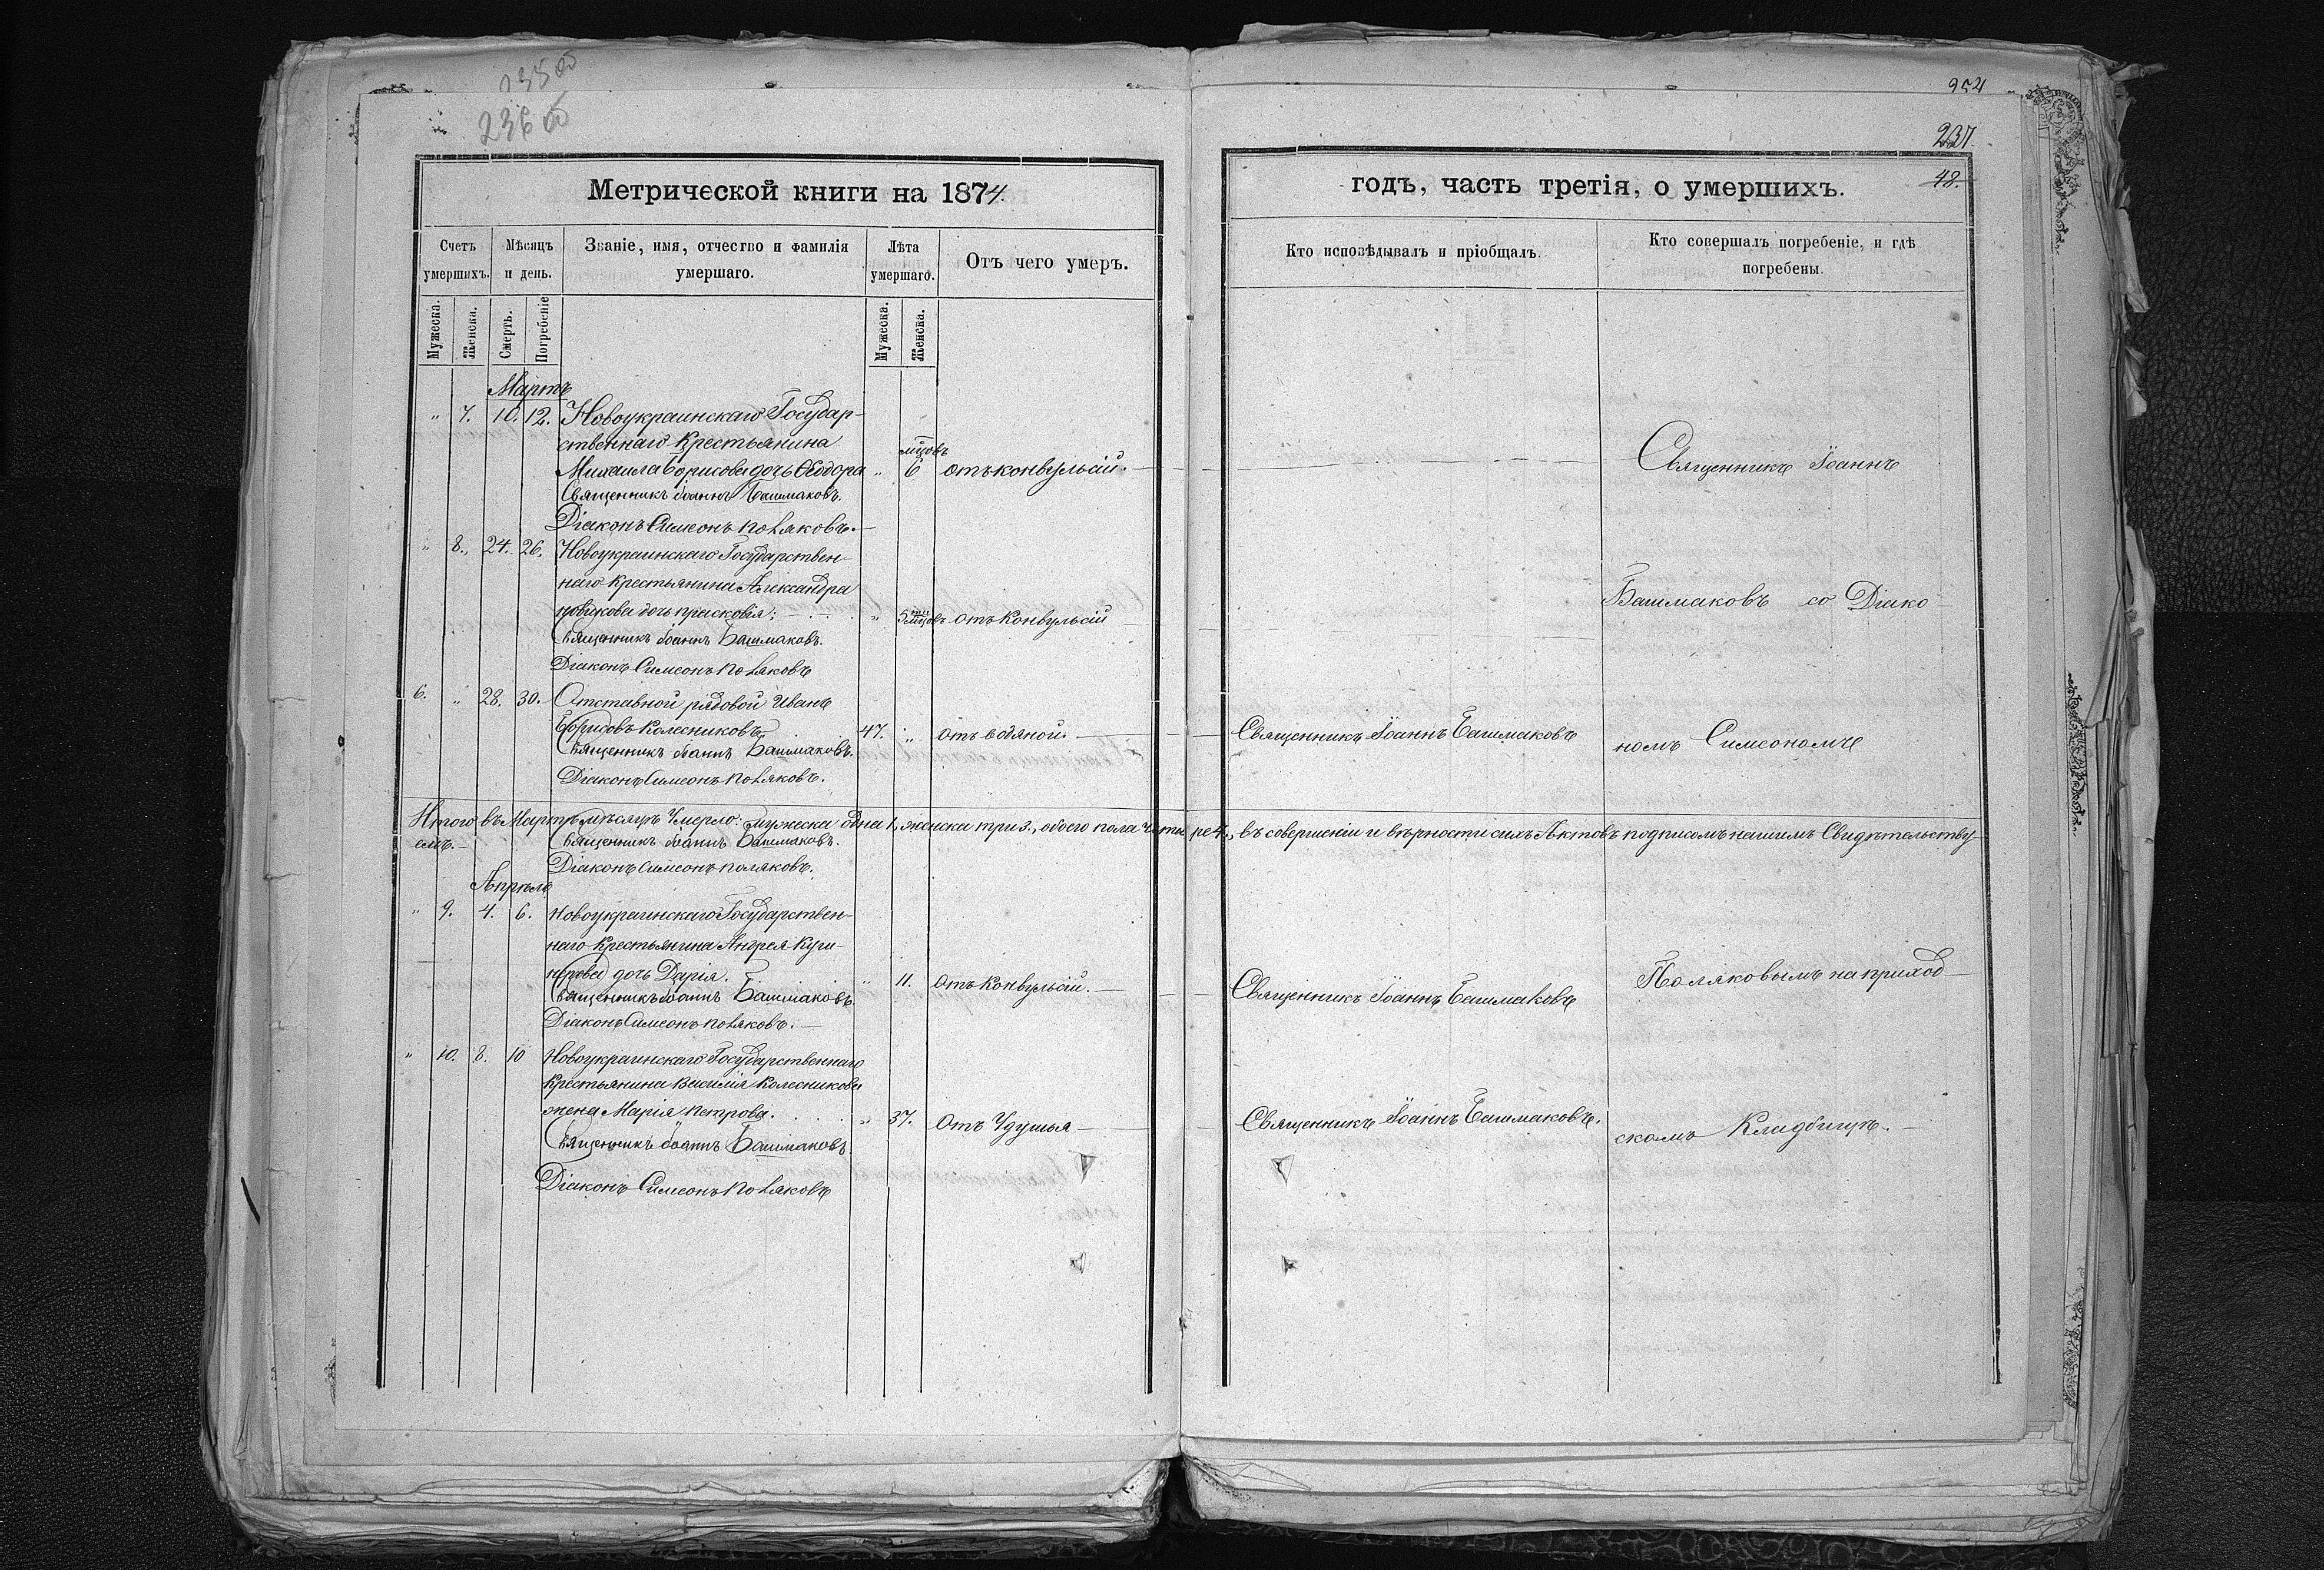 235 об
236 об
954
237.
48.
Метрической книги на 1874.
годъ, часть третія, о умершихъ.
Счетъ умершихъ.
Мѣсяцъ и день.
Званіе, имя, отчество и фамилія умершаго.
Лѣта умершаго.
Отъ чего умеръ.
Кто исповѣдывалъ и пріобщалъ.
Кто совершалъ погребеніе, и гдѣ погребены.
Мужеска.
Женска.
Смерть.
Погребеніе
Мужеска.
Женска.
Мартъ
" 7. 10. 12. Новоукраинскаго Государ-
ственнаго Крестьянина
мцовъ
Михаила Борисова дочь Ѳеодора " 6 отъ конвульсій. Священникъ Іоаннъ
Священникъ Іоаннъ Башмаковъ.
Діаконъ Симеонъ Поляковъ.
" 8. 24. 26. Новоукраинскаго Государствен-
наго Крестьянина Александра
Новикова дочь Прасковія. " 5 мцовъ отъ Конвульсій Башмаковъ со Діако-
Священникъ Іоаннъ Башмаковъ.
Діаконъ Симеонъ Поляковъ
6. " 28. 30. Отставной рядовой Иванъ
Борисовъ Колесниковъ 47. " отъ водяной. Священникъ Іоаннъ Башмаковъ номъ Симеономъ
Священникъ Іоаннъ Башмаковъ.
Діаконъ Симеонъ Поляковъ.
Итого въ Мартѣ мѣсяцѣ Умерло: мужеска одна 1, женска три 3., обоего пола четыре 4., въ совершеніи и вѣрности сихъ Актовъ подписомъ нашимъ Свидѣтельству-
емъ.
Священникъ Іоаннъ Башмаковъ.
Діаконъ Симеонъ Поляковъ.
Апрѣль
" 9. 4. 6. Новоукраинскаго Государствен-
наго Крестьянина Андрея
дочь Дарія. " 11. Отъ Конвульсій. Священникъ Іоаннъ Башмаковъ Поляковымъ на приход-
Священникъ Іоаннъ Башмаковъ
Діаконъ Симеонъ Поляковъ.
" 10. 8. 10 Новоукраинскаго Государственнаго
Крестьянина Василія Колесникова
жена Марія Петрова. " 37. Отъ Удушья Священникъ Іоаннъ Башмаковъ. скомъ Кладбищѣ.
Священникъ Іоаннъ Башмаковъ
Діаконъ Симеонъ Поляковъ